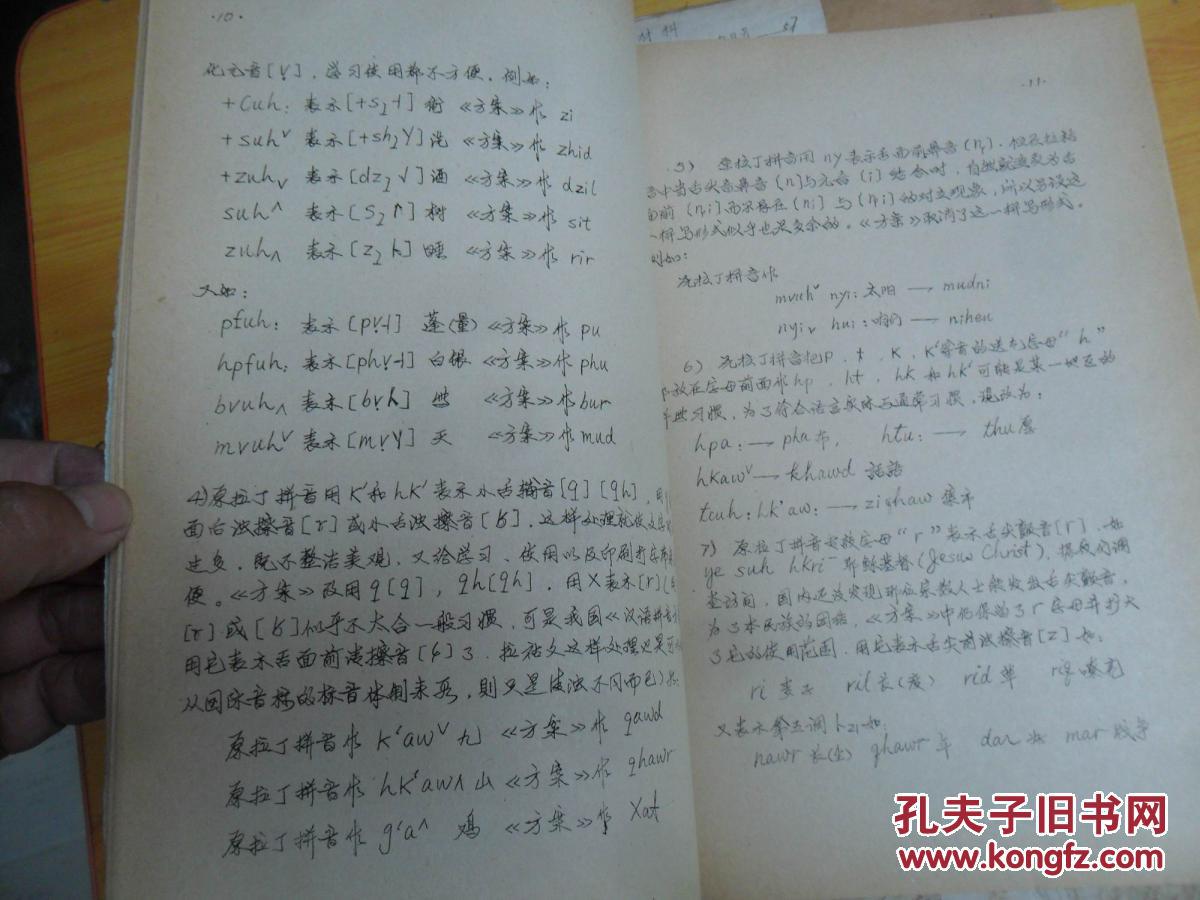 ·10·
化元音[v̩]，学习使用都不方便。例如：
+cuh: 表示 [+s̩˧] 《方案》作 zi
+suhᵛ 表示 《方案》作 zhid
+zuhᵥ 表示 酒 《方案》作 dzil
suh^ 表示 树 《方案》作 sit
zuh^ 表示 睡 《方案》作 rir
又如：
pfuh: 表示 [pv̩˧] 蓬(量) 《方案》作 pu
hpfuh: 表示 [phv̩˧] 白银 《方案》作 phu
bvuh^ 表示 些 《方案》作 bur
mvuhᵛ 表示 天 《方案》作 mud
4)原拉丁拼音用 K'和 hK' 表示小舌辅音[q][qh]，用
面右浊擦音[ɣ]或小舌浊擦音[ʁ]，这样处理就使文字
过多，既不整洁美观，又给学习、使用以及印刷打字
便。《方案》改用 q[q]，qh[qh]，用 X表示[ɣ]
[ɣ]或[ʁ]似乎不大合一般习惯，可是我国《汉语拼音
用它表示舌面前清擦音[ɕ]了，拉祜文这样处理
以国际音标的标音体制来看，则只是清浊不同而已
原拉丁拼音作 K'awᵛ 九 《方案》作 qawd
原拉丁拼音作 hK'aw^ 山 《方案》作 qhawr
原拉丁拼音作 g'a^ 鸡 《方案》作 Xat
材料
57
·11·
5) 原拉丁拼音用 ny 表示舌面前鼻音(ȵ)，但在拉祜
语中当舌尖音鼻音(n)与元音(i)结合时，自然就变为舌
面前(ȵi)而不存在(ni)与(ȵi)的对立现象，所以另设这
一拼写形式似乎也是多余的。《方案》取消了这一拼写形式。
例如：
原拉丁拼音作
mvuhᵛ nyi: 太阳 → mudni
nyiᵥ hui: 咱们 → niheu
6) 原拉丁拼音把P、t、K、K'等音的送气字母"h"
放在字母前面作hp、ht、hk 和 hk' 可能是某一地区的
习惯，为了符合语言实际与通常习惯，现改为：
hpa: → pha 布， htu: → thu 厚
hKawᵛ → khawd 話語
tcuh: hk'aw: → ziqhaw 集市
7) 原拉丁拼音字母"r"表示舌尖颤音[r]，如
ye suh hkri⁻ 耶稣基督(Jesus Christ)，据我们调
查访问，国内还没发现那位宗教人士能发出舌尖颤音，
为了本民族的团结，《方案》中仍保留了r字母并扩大
了它的使用范围，用它表示舌尖前浊擦音[z]如：
ri ril 长(度) rid 草
又表示 调 如：
nawr qhawr 年 dar mar 战争
孔夫子旧书网
www.kongfz.com